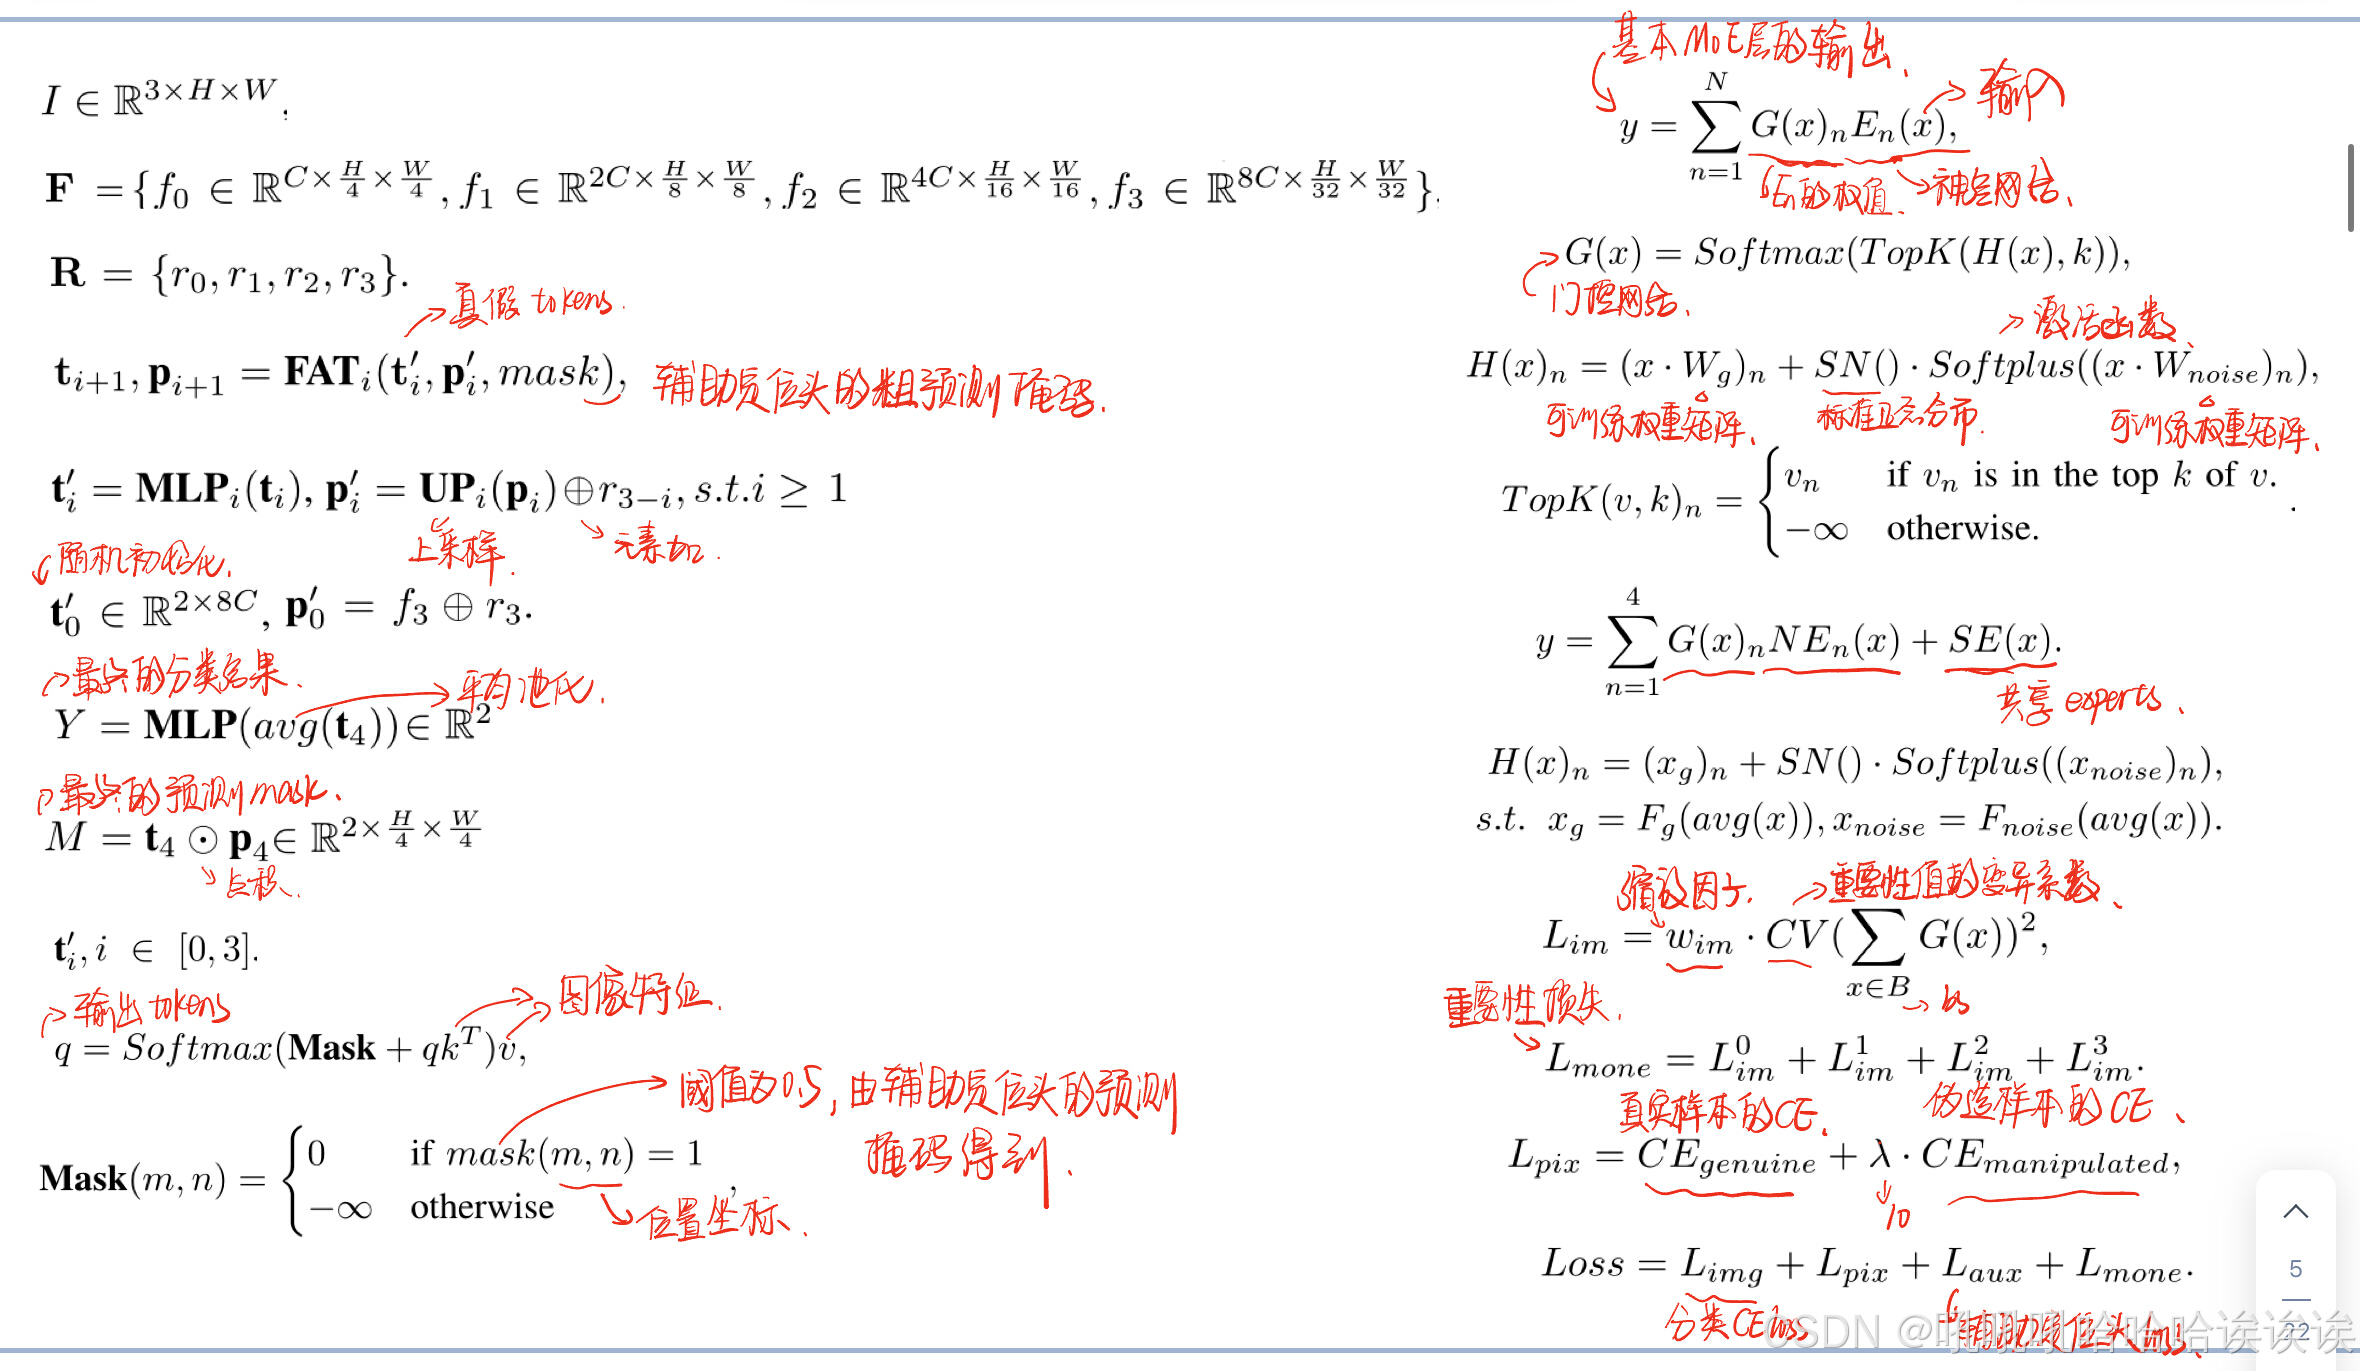 I ∈ ℝ^{3×H×W},
F = {f_0 ∈ ℝ^{C×\frac{H}{4}×\frac{W}{4}}, f_1 ∈ ℝ^{2C×\frac{H}{8}×\frac{W}{8}}, f_2 ∈ ℝ^{4C×\frac{H}{16}×\frac{W}{16}}, f_3 ∈ ℝ^{8C×\frac{H}{32}×\frac{W}{32}}}.
R = {r_0, r_1, r_2, r_3}.
真假 tokens.
t_{i+1}, p_{i+1} = FAT_i(t'_i, p'_i, mask),
辅助定位头的粗预测掩码.
t'_i = MLP_i(t_i), p'_i = UP_i(p_i)⊕r_{3−i}, s.t.i ≥ 1
随机初始化.
上采样.
元素加.
t'_0 ∈ ℝ^{2×8C}, p'_0 = f_3 ⊕ r_3.
最终的分类结果.
平均池化.
Y = MLP(avg(t_4))∈ ℝ^2
最终的预测mask.
M = t_4 ⊙ p_4∈ ℝ^{2×\frac{H}{4}×\frac{W}{4}}
点积.
t'_i, i ∈ [0,3].
输出tokens
图像特征.
q = Softmax(Mask + qk^T)v,
阈值为0.5,由辅助定位头的预测
掩码得到.
Mask(m, n) = { 0 if mask(m, n) = 1
−∞ otherwise ,
位置坐标.
基本MoE层的输出.
输入
y = \sum_{n=1}^{N} G(x)_n E_n(x),
En的权值.
神经网络.
G(x) = Softmax(TopK(H(x), k)),
门控网络.
激活函数.
H(x)_n = (x · W_g)_n + SN() · Softplus((x · W_{noise})_n),
可训练权重矩阵.
标准正态分布.
可训练权重矩阵.
TopK(v, k)_n = { v_n if v_n is in the top k of v.
−∞ otherwise. .
y = \sum_{n=1}^{4} G(x)_n NE_n(x) + SE(x).
共享 experts.
H(x)_n = (x_g)_n + SN() · Softplus((x_{noise})_n),
s.t. x_g = F_g(avg(x)), x_{noise} = F_{noise}(avg(x)).
缩放因子.
重要性值的变异系数.
L_{im} = w_{im} · CV(\sum_{x∈B} G(x))^2,
bs
重要性损失.
L_{mone} = L^0_{im} + L^1_{im} + L^2_{im} + L^3_{im}.
真实样本的CE.
伪造样本的CE.
L_{pix} = CE_{genuine} + λ · CE_{manipulated},
10
Loss = L_{img} + L_{pix} + L_{aux} + L_{mone}.
分类CE loss
辅助定位头loss.
5
22